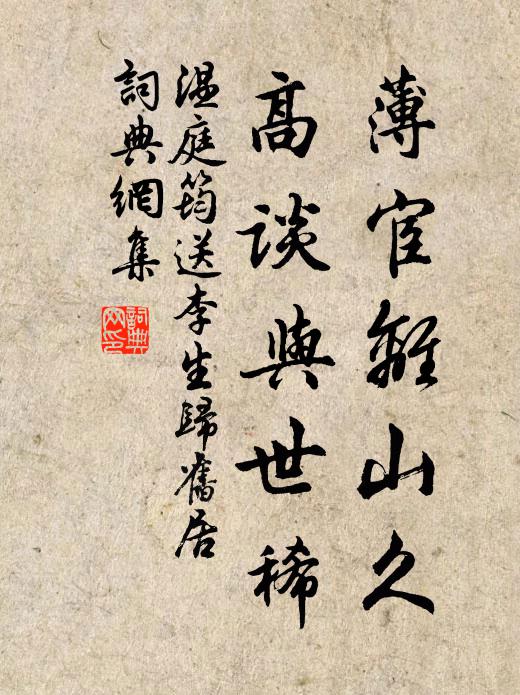 薄宦離山久
高談與世稀
温庭筠送李生歸舊居
詞典網集
詞典網印